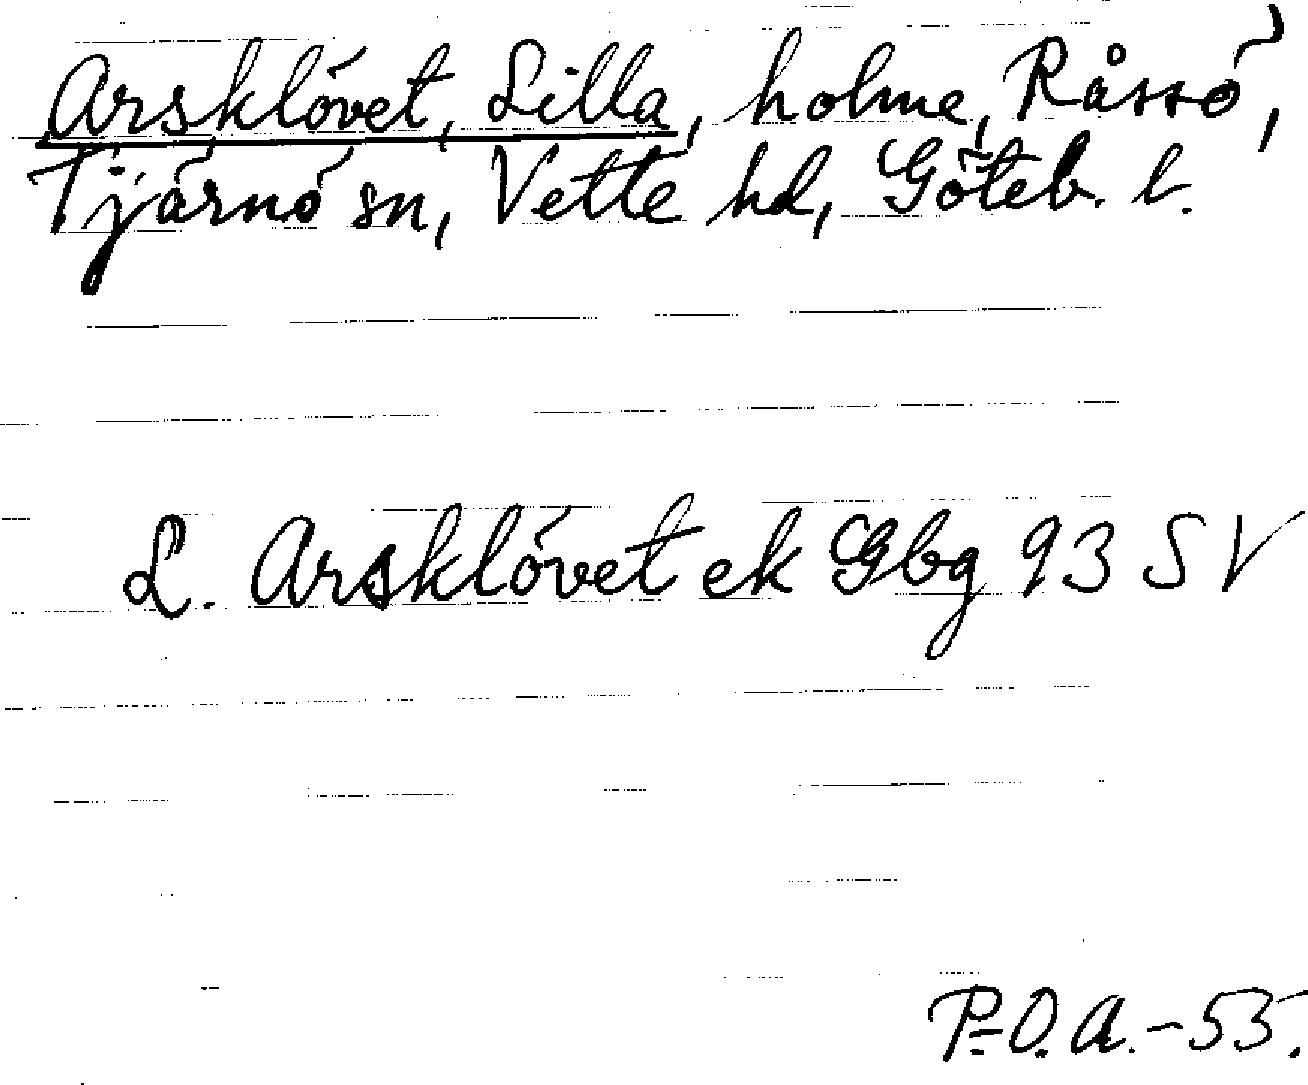 Arsklövet, Lilla, holme, Råssö,
Tjärnö sn, Vette hd, Göteb. l.
L. Arsklövet ek Gbg 93 SV
P.O.A.-53.